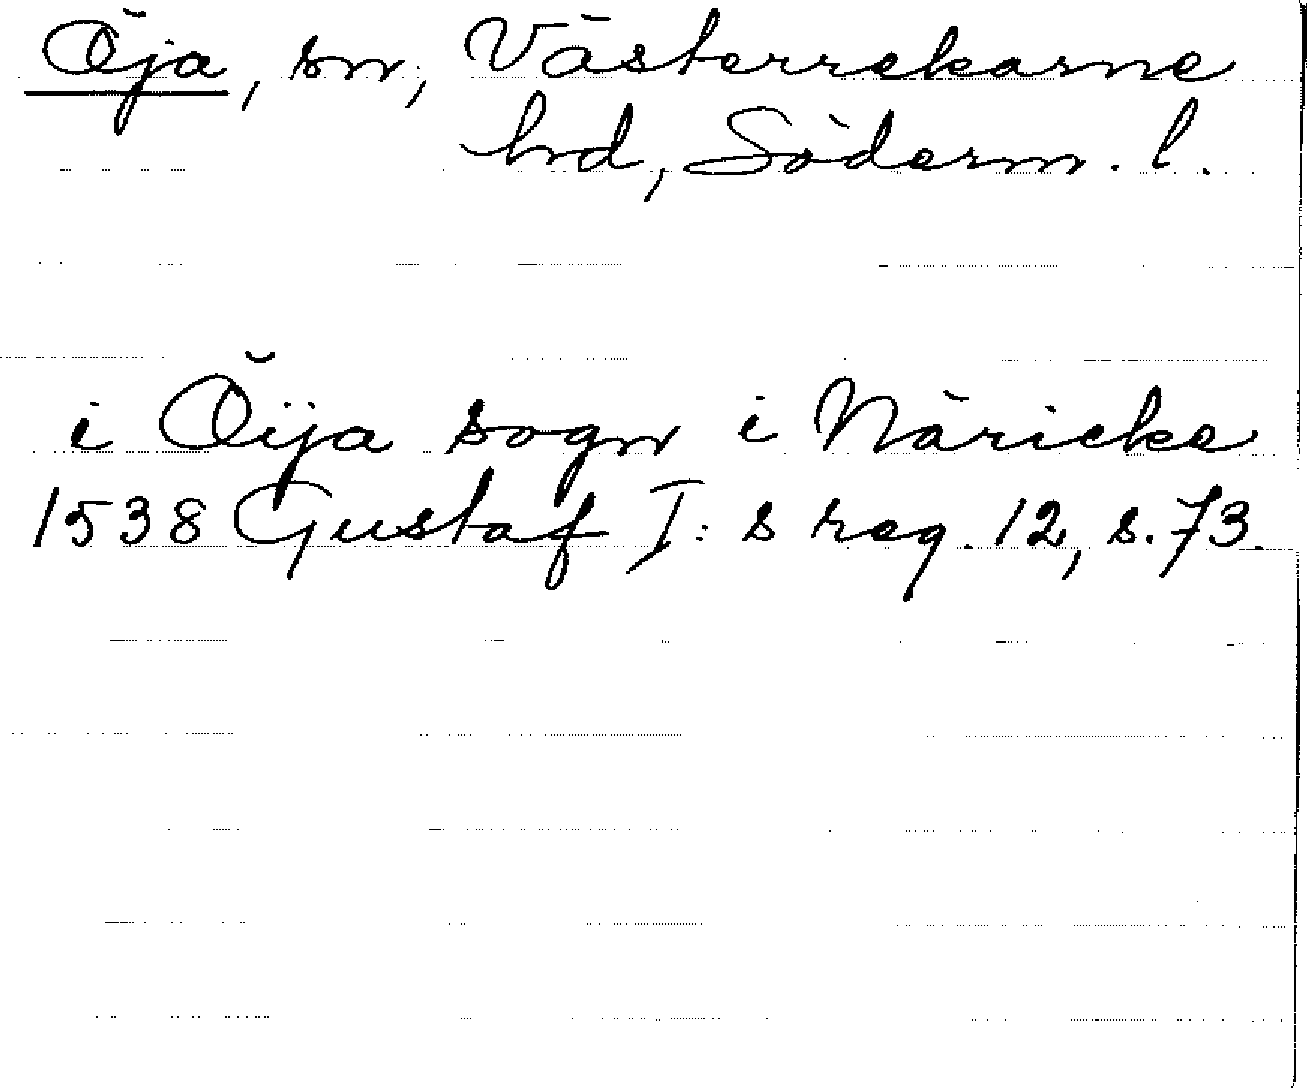 Öja, sn, Västerrekarne
hrd, Söderm. l.
i Öija sogn i Näricke
1538 Gustaf I: s reg. 12, s. 73.